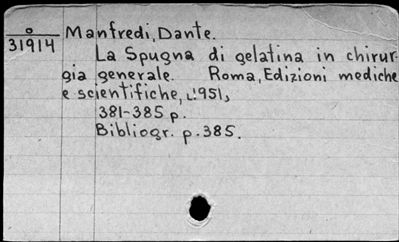 o
31914
Manfredi, Dante.
La Spugna di gelatina in chirur-
gia generale. Roma, Edizioni mediche
e scientifiche, [1951]
381-385 p.
Bibliogr. p. 385.